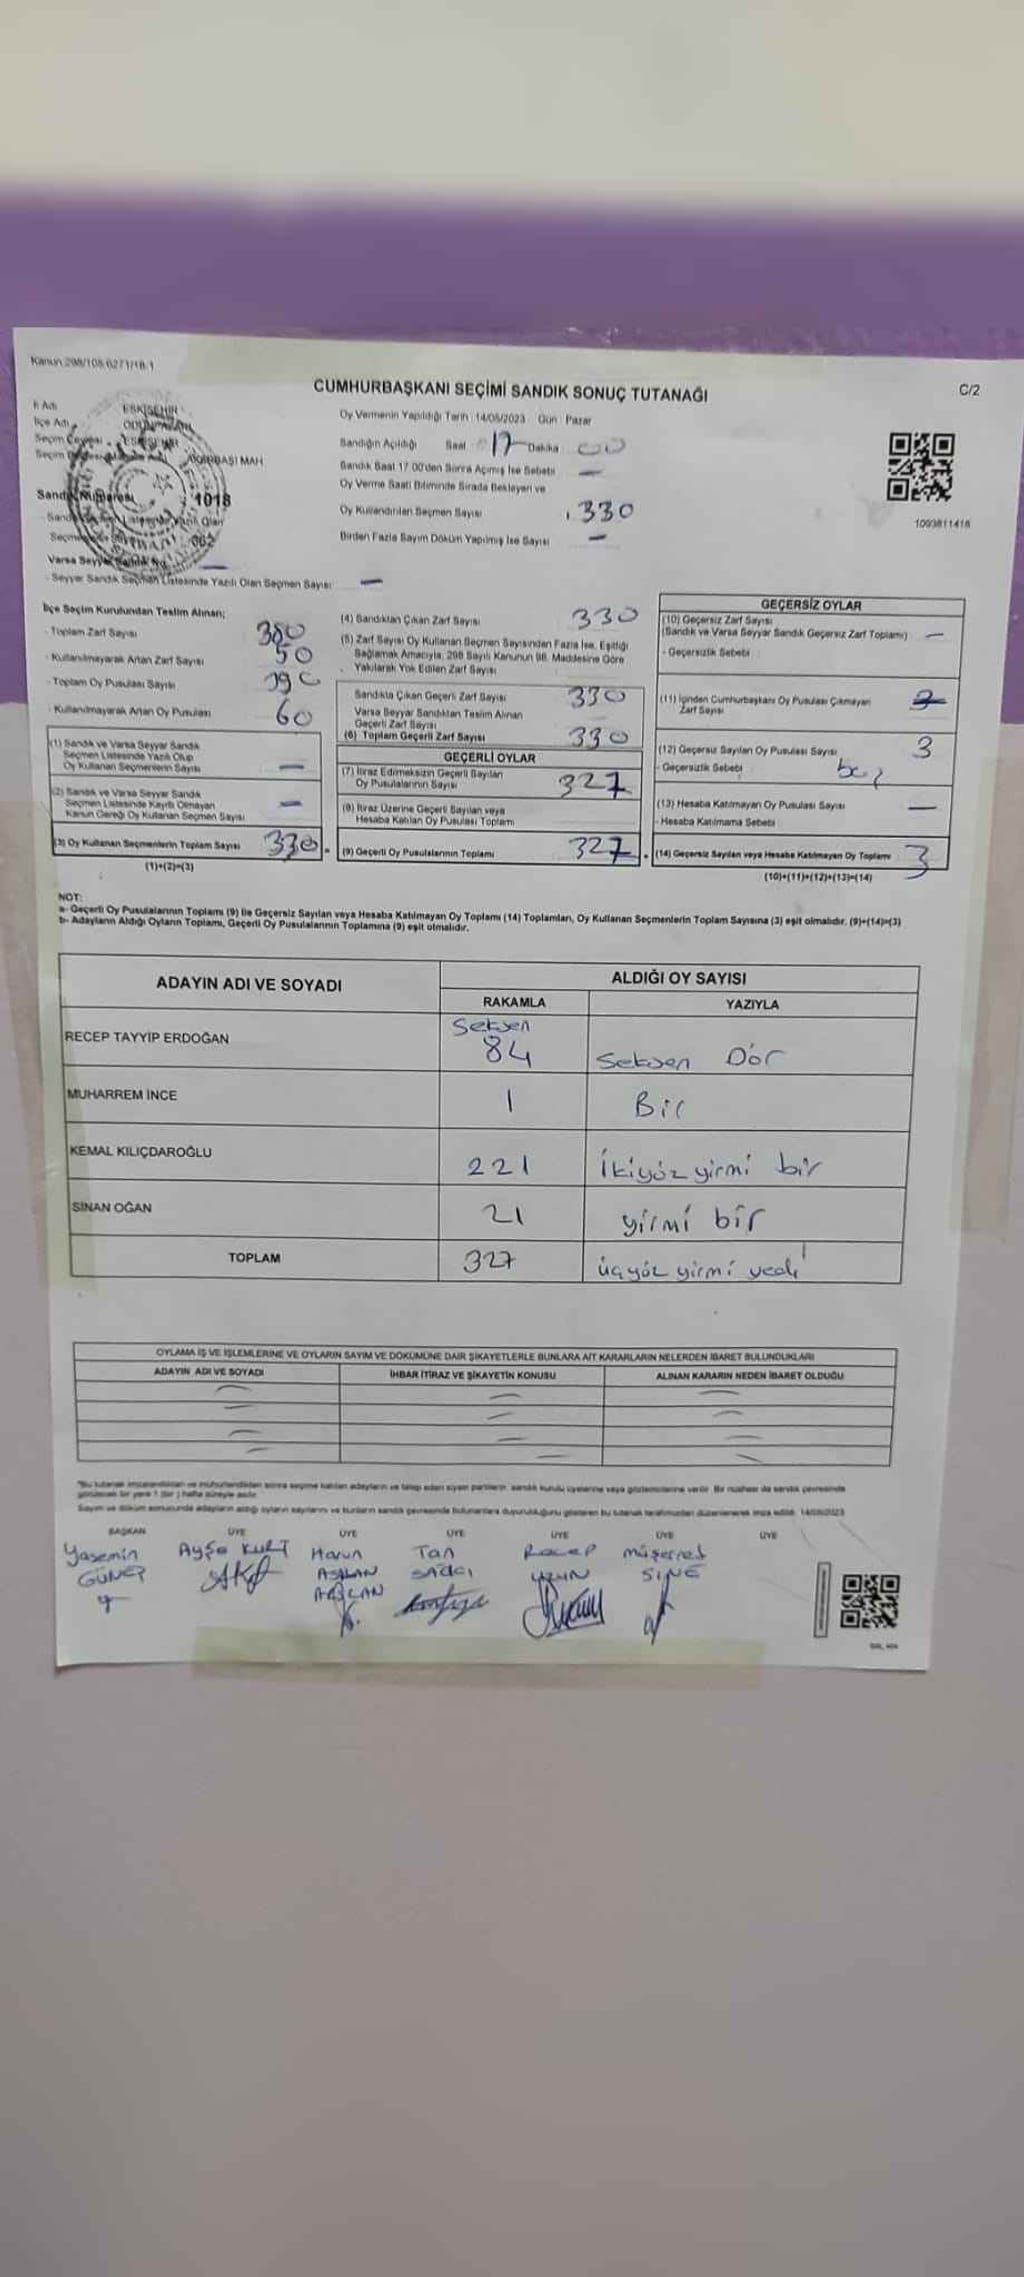 Kanun 298/105 6271/18.1
CUMHURBAŞKANI SEÇİMİ SANDIK SONUÇ TUTANAĞI
C/2
İl Adı ESKİŞEHİR
İlçe Adı ODUNPAZARI
Seçim Çevresi ESKİŞEHİR
MAH
Sandık Numarası 1018
Oy Vermenin Yapıldığı Tarih : 14/05/2023 Gün : Pazar
Sandığın Açıldığı Saat 17 Dakika 00
Sandık Saat 17.00'den Sonra Açımış İse Sebebi —
Oy Verme Saati Bitiminde Sırada Bekleyen ve
Oy Kullandırılan Seçmen Sayısı 330
Birden Fazla Sayım Döküm Yapılmış İse Sayısı —
1093811418
Varsa Seyyar Sandık No —
- Seyyar Sandık Seçmen Listesinde Yazılı Olan Seçmen Sayısı —
İlçe Seçim Kurulundan Teslim Alınan;
- Toplam Zarf Sayısı 380
- Kullanılmayarak Artan Zarf Sayısı 50
- Toplam Oy Pusulası Sayısı 390
- Kullanılmayarak Artan Oy Pusulası 60
(1) Sandık ve Varsa Seyyar Sandık
Seçmen Listesinde Yazılı Olup
Oy Kullanan Seçmenlerin Sayısı —
(2) Sandık ve Varsa Seyyar Sandık
Seçmen Listesinde Kayıtlı Olmayan
Kanun Gereği Oy Kullanan Seçmen Sayısı —
(3) Oy Kullanan Seçmenlerin Toplam Sayısı 330
(1)+(2)=(3)
(4) Sandıktan Çıkan Zarf Sayısı 330
(5) Zarf Sayısı Oy Kullanan Seçmen Sayısından Fazla İse, Eşitliği
Sağlamak Amacıyla, 298 Sayılı Kanunun 98. Maddesine Göre
Yakılarak Yok Edilen Zarf Sayısı
Sandıkta Çıkan Geçerli Zarf Sayısı 330
Varsa Seyyar Sandıktan Teslim Alınan
Geçerli Zarf Sayısı
(6) Toplam Geçerli Zarf Sayısı 330
GEÇERLİ OYLAR
(7) İtiraz Edilmeksizin Geçerli Sayılan
Oy Pusulalarının Sayısı 327
(8) İtiraz Üzerine Geçerli Sayılan veya
Hesaba Katılan Oy Pusulası Toplamı
(9) Geçerli Oy Pusulalarının Toplamı 327
GEÇERSİZ OYLAR
(10) Geçersiz Zarf Sayısı
(Sandık ve Varsa Seyyar Sandık Geçersiz Zarf Toplamı) —
- Geçersizlik Sebebi
(11) İçinden Cumhurbaşkanı Oy Pusulası Çıkmayan
Zarf Sayısı
(12) Geçersiz Sayılan Oy Pusulası Sayısı 3
- Geçersizlik Sebebi
(13) Hesaba Katılmayan Oy Pusulası Sayısı —
- Hesaba Katılmama Sebebi
(14) Geçersiz Sayılan veya Hesaba Katılmayan Oy Toplamı 3
(10)+(11)+(12)+(13)=(14)
NOT:
a- Geçerli Oy Pusulalarının Toplamı (9) ile Geçersiz Sayılan veya Hesaba Katılmayan Oy Toplamı (14) Toplamları, Oy Kullanan Seçmenlerin Toplam Sayısına (3) eşit olmalıdır. (9)+(14)=(3)
b- Adayların Aldığı Oyların Toplamı, Geçerli Oy Pusulalarının Toplamına (9) eşit olmalıdır.
ADAYIN ADI VE SOYADI
ALDIĞI OY SAYISI
RAKAMLA YAZIYLA
RECEP TAYYİP ERDOĞAN Seksen 84 Seksen Dör
MUHARREM İNCE 1 Bir
KEMAL KILIÇDAROĞLU 221 İkiyüz yirmi bir
SİNAN OĞAN 21 yirmi bir
TOPLAM 327 üçyüz yirmi yedi
OYLAMA İŞ VE İŞLEMLERİNE VE OYLARIN SAYIM VE DÖKÜMÜNE DAİR ŞİKAYETLERLE BUNLARA AİT KARARLARIN NELERDEN İBARET BULUNDUKLARI
ADAYIN ADI VE SOYADI İHBAR İTİRAZ VE ŞİKAYETİN KONUSU ALINAN KARARIN NEDEN İBARET OLDUĞU
BAŞKAN ÜYE ÜYE ÜYE ÜYE ÜYE ÜYE
Yasemin Ayşe KURT Harun Tan Recep Müşerref
GÜNEP ASLAN SADCI UZUN SİNE
ARSLAN